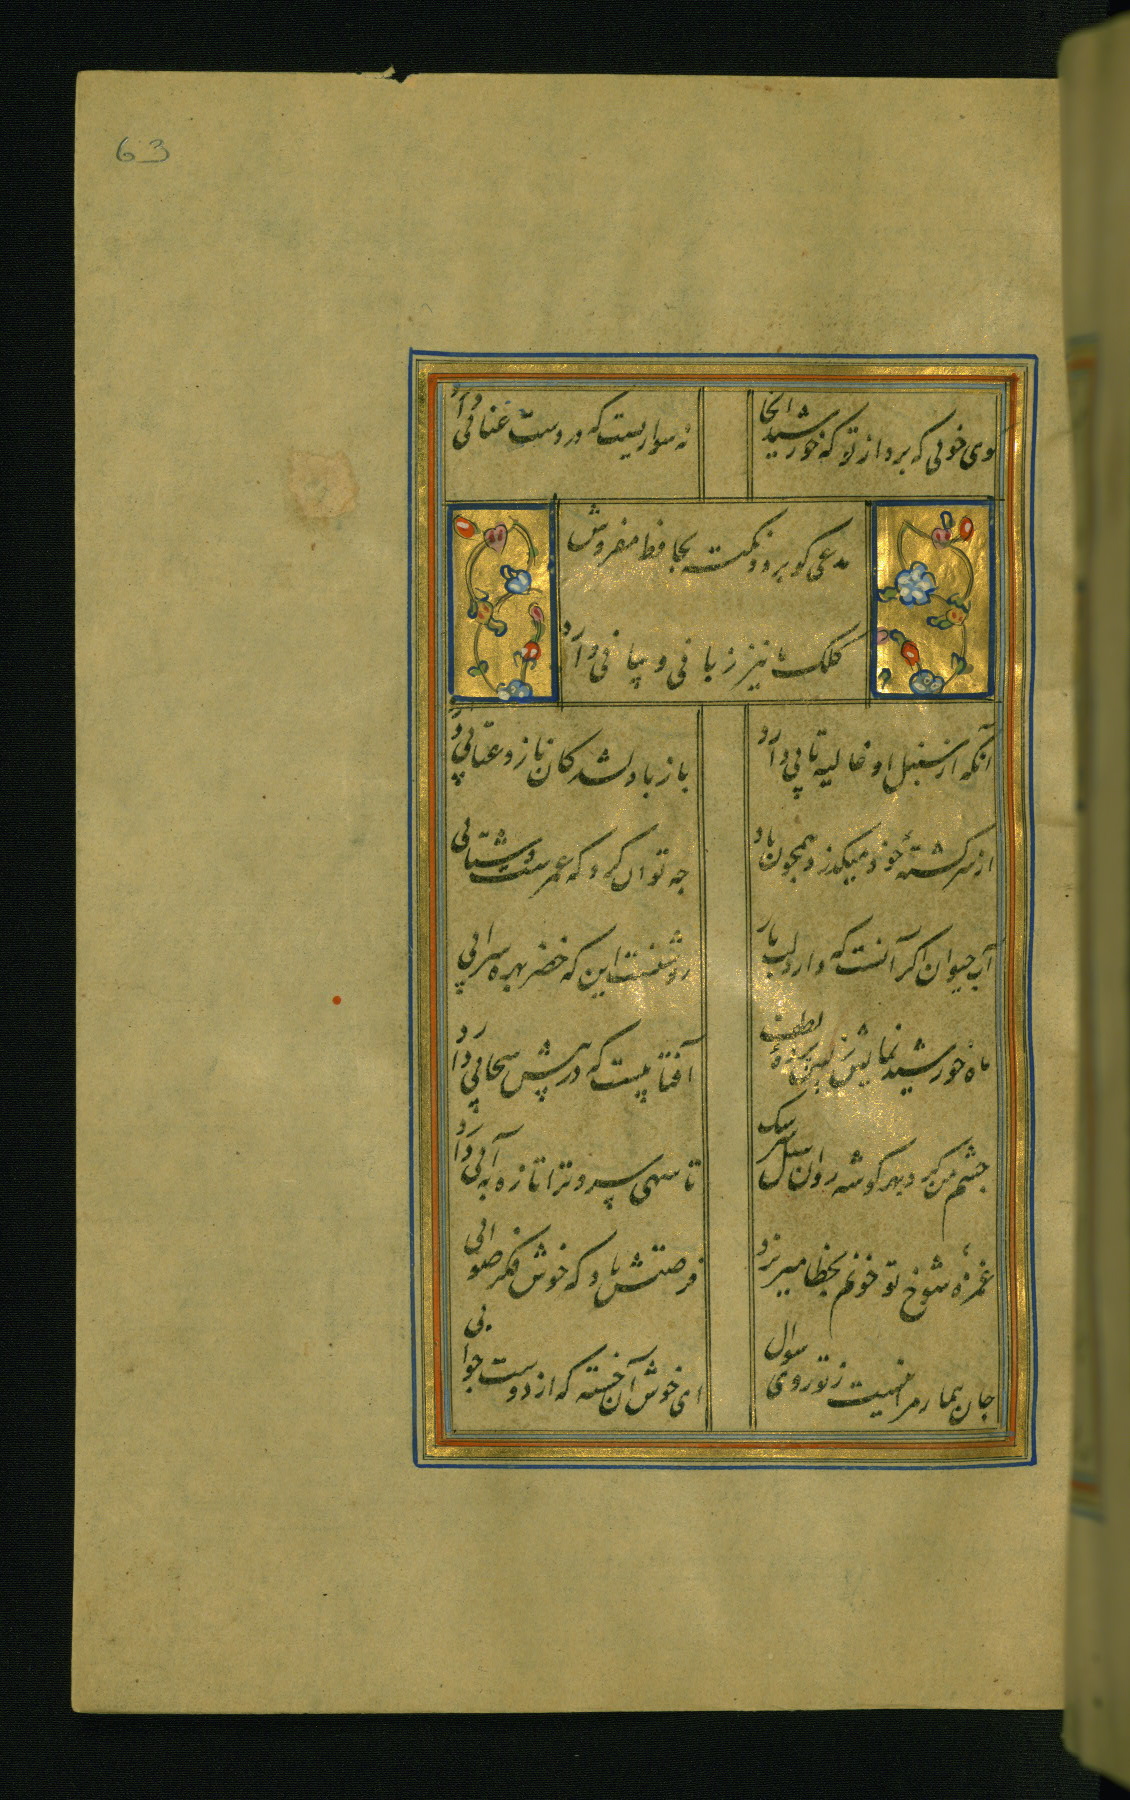 63
کوی خوبی که برد از تو که خورشید اینجا
نه سواریست که در دست عنانی دارد
مدعی کو برو و نکته بحافظ مفروش
کلک ما نیز زبانی و بیانی دارد
آنکه از سنبل او غالیه تابی دارد
باز با دلشدکان ناز و عتابی دارد
از سر کشتهٔ خود میکذرد همچون باد
چه توان کرد که عمرست و شتابی
آب حیوان اکر آنست که دارد لب یار
روشنست این که خضر بهره سرابی
ماه خورشید نمایش ز پس پردهٔ زلف
آفتابیست که در پیش سحابی دارد
چشم من کرد بهر کوشه روان سیل سرشک
تا سهی سرو ترا تازه به آبی دارد
غمزهٔ شوخ تو خونم بخطا میریزد
فرصتش باد که خوش فکر صوابی
جان بیمار مرا نیست ز تو روی سوال
ای خوش آن خسته که از دوست جوابی